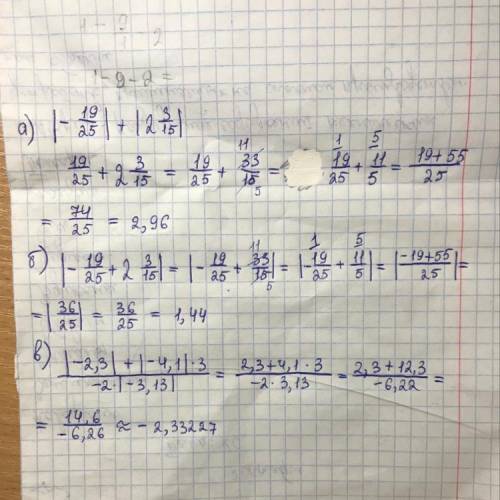 1 - 9 - 2 =
а) |-19/25| + |2 3/15|
19/25 + 2 3/15 = 19/25 + 33/15 = 19/25 + 11/5 = (19+55)/25
= 74/25 = 2,96
б) |-19/25 + 2 3/15| = |-19/25 + 33/15| = |-19/25 + 11/5| = |(-19+55)/25| =
= |36/25| = 36/25 = 1,44
в) (|-2,3| + |-4,1|·3)/(-2·|-3,13|) = (2,3+4,1·3)/(-2·3,13) = (2,3+12,3)/(-6,22) =
= 14,6/(-6,26) ≈ -2,33227